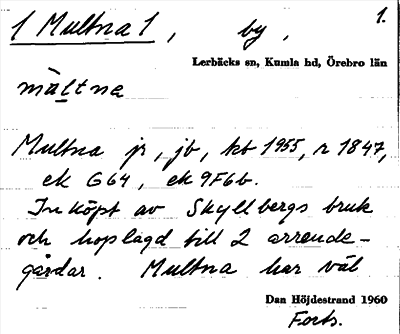 1 Multna 1, by, 1.
Lerbäcks sn, Kumla hd, Örebro län
mùltna
Multna jr, jb, kt 1955, r 1847,
ek G64, ek 9F6b.
Inköpt av Skyllbergs bruk
och hoplagd till 2 arrende-
gårdar. Multna har väl
Dan Höjdestrand 1960
Forts.